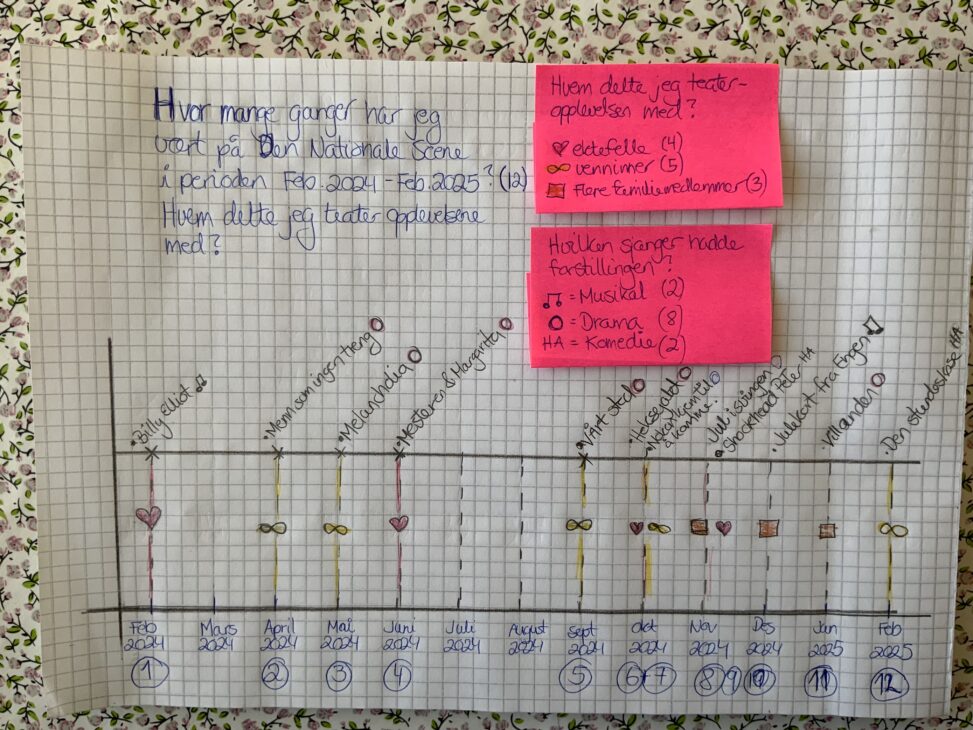 Hvor mange ganger har jeg
vært på Den Nationale Scene
i perioden Feb. 2024 - Feb. 2025? (12)
Hvem delte jeg teater opplevelsene
med?
Hvem delte jeg teater-
opplevelsen med?
ektefelle (4)
venninner (5)
Flere familiemedlemmer (3)
Hvilken sjanger hadde
forstillingen?
= Musikal (2)
= Drama (8)
HA = Komedie (2)
Billy Elliot
Menn som ingen treng
Melancholia
Mesteren & Margarita
Vårt sted
Heksejakt
Nokon kjem til
å komme.
Juli
Shockhead Peter HA
Julekort fra Engen
Villanden
Den stundesløse HA
Feb 2024
Mars 2024
April 2024
Mai 2024
Juni 2024
Juli 2024
August 2024
Sept 2024
Okt 2024
Nov 2024
Des 2024
Jan 2025
Feb 2025
1 2 3 4 5 6 7 8 9 10 11 12